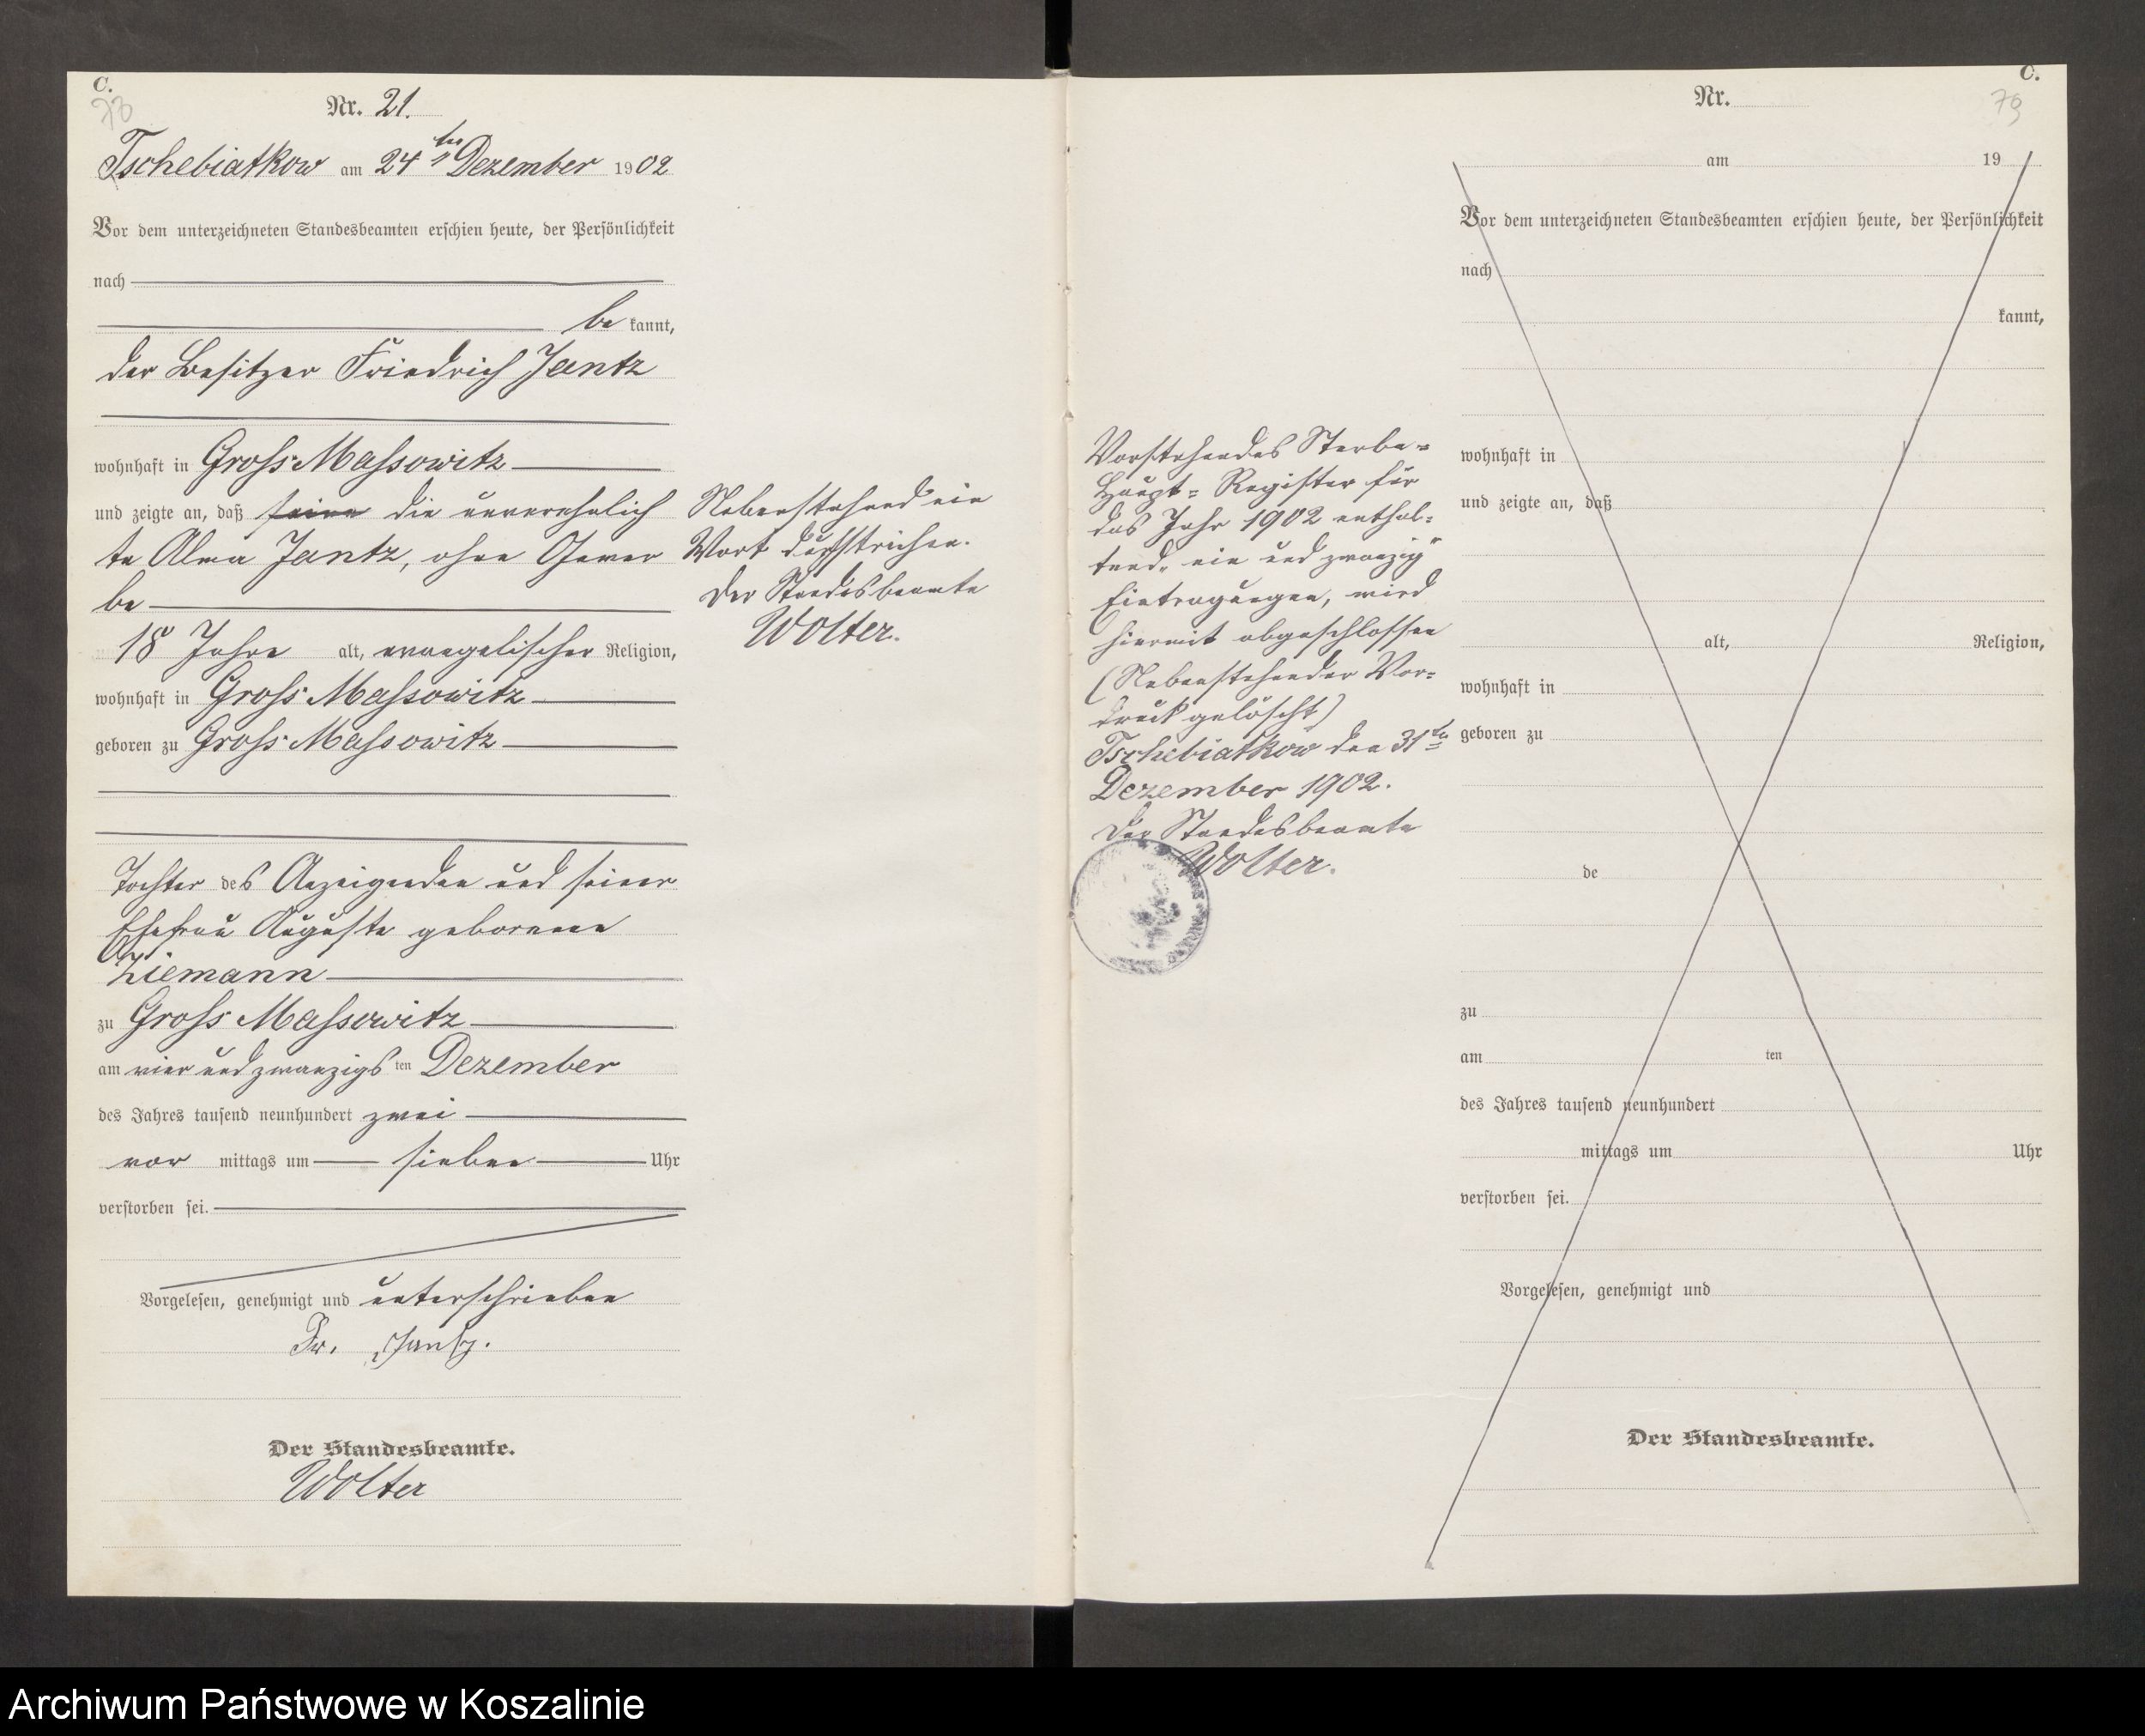 C.
78
Nr. 21.
Tschebiatkow am 24ten Dezember 1902
Vor dem unterzeichneten Standesbeamten erschien heute, der Persönlichkeit
nach
be kannt,
der Besitzer Friedrich Jantz
wohnhaft in Gross Massowitz
und zeigte an, daß seine die unverehelich
te Alma Jantz, ohne Gewer
be
18 Jahre alt, evangelischer Religion,
wohnhaft in Gross Massowitz
geboren zu Gross Massowitz
Tochter des Anzeigenden und seiner
Ehefrau Auguste geborenen
Ziemann
zu Gross Massowitz
am vier und zwanzigs ten Dezember
des Jahres tausend neunhundert zwei
vor mittags um sieben Uhr
verstorben sei.
Vorgelesen, genehmigt und unterschrieben
Fr. Jantz.
Der Standesbeamte.
Wolter
Nebenstehend ein
Wort durchstrichen.
Der Standesbeamte
Wolter.
Vorstehendes Sterbe-
Haupt-Register für
das Jahr 1902 enthal-
tend „ein und zwanzig"
Eintragungen, wird
hiermit abgeschlossen
(Nebenstehender Vor-
druck gelöscht)
Tschebiatkow den 31ten
Dezember 1902.
Der Standesbeamte
Wolter.
C.
79
Nr.
am 19
Vor dem unterzeichneten Standesbeamten erschien heute, der Persönlichkeit
nach
kannt,
wohnhaft in
und zeigte an, daß
alt, Religion,
wohnhaft in
geboren zu
de
zu
am ten
des Jahres tausend neunhundert
mittags um Uhr
verstorben sei.
Vorgelesen, genehmigt und
Der Standesbeamte.
Archiwum Państwowe w Koszalinie